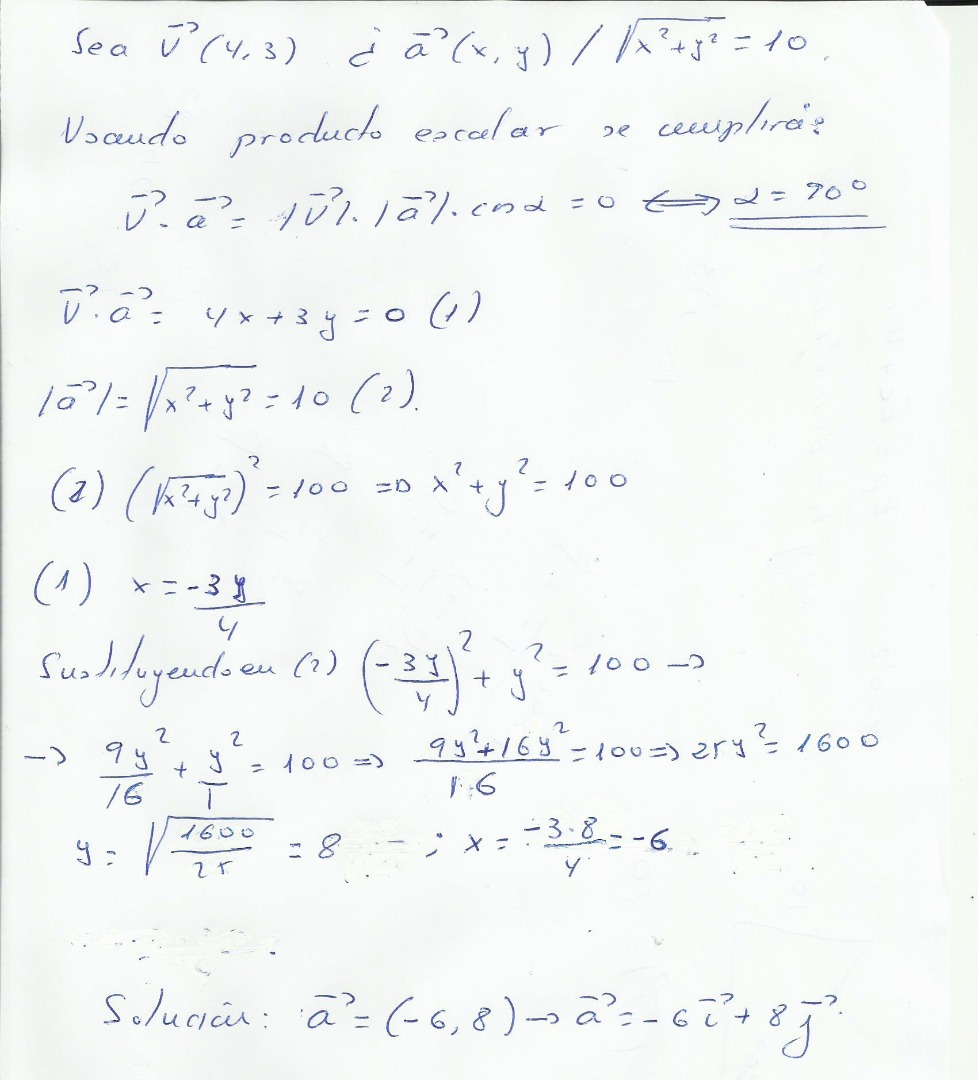 Sea v⃗(4,3) ¿ a⃗(x, y) / √(x²+y²) = 10.
Usando producto escalar se cumplirá:
v⃗ · a⃗ = |v⃗|·|a⃗|·cos α = 0 ⟺ α = 90º
v⃗ · a⃗ = 4x + 3y = 0 (1)
|a⃗| = √(x²+y²) = 10 (2).
(2) (√(x²+y²))² = 100 ⇒ x² + y² = 100
(1) x = -3y/4
Sustituyendo en (2) (-3y/4)² + y² = 100 →
→ 9y²/16 + y²/1 = 100 ⇒ (9y²+16y²)/16 = 100 ⇒ 25y² = 1600
y = √(1600/25) = 8 ; x = -3·8/4 = -6
Solución: a⃗ = (-6, 8) → a⃗ = -6i⃗ + 8j⃗.